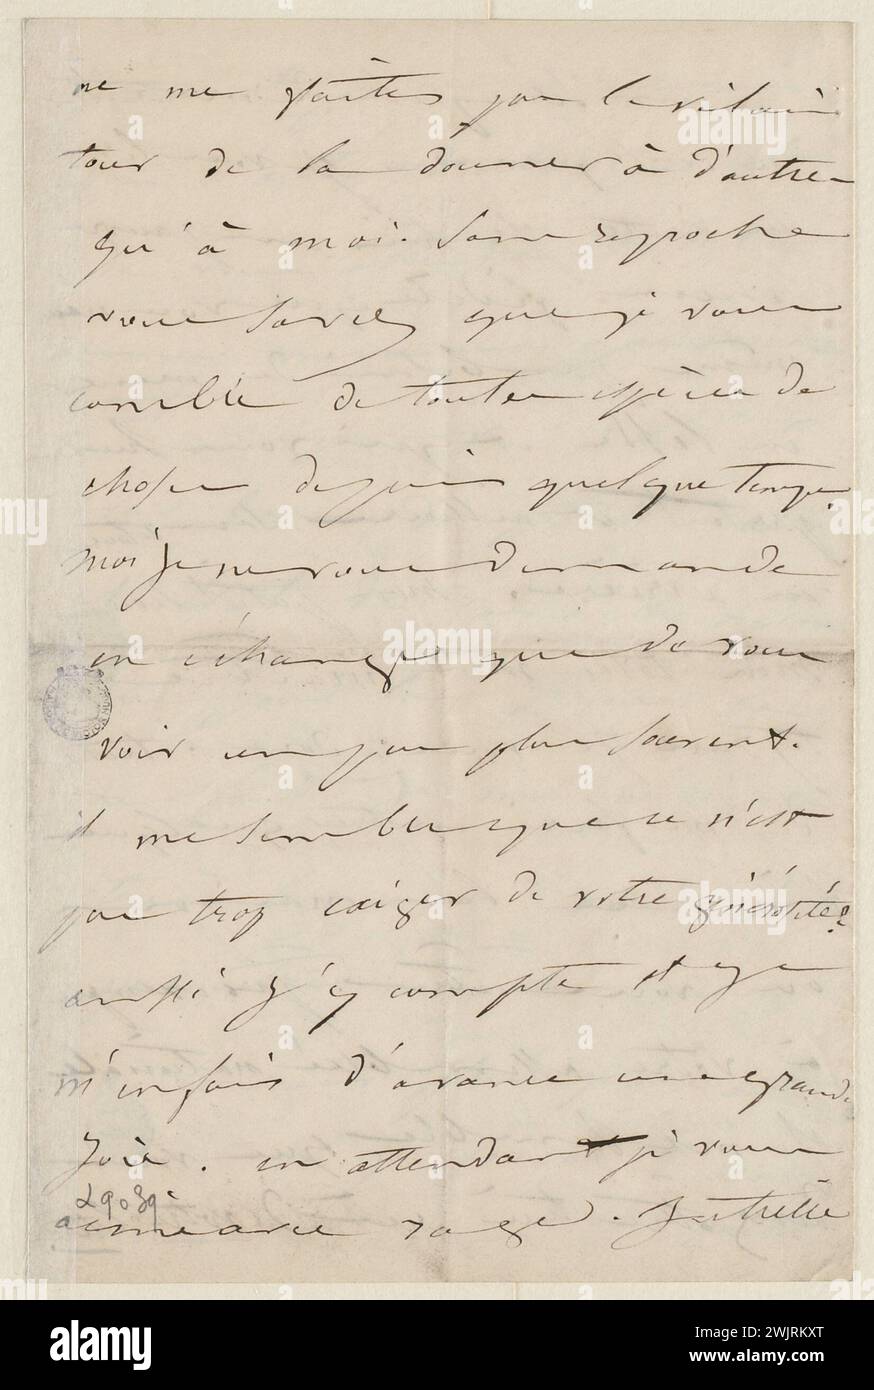 ne me faites pas le vilain
tour de la donner à d'autre
qu'à moi. Sans reproche
vous savez que je vous
comble de toutes espèces de
choses depuis quelque temps.
moi je ne vous demande
en échange que de vous
voir un peu plus souvent.
il me semble que ce n'est
pas trop exiger de votre générosité?
aussi j'y compte et je
m'en fais d'avance une grande
joie. en attendant je vous
aime avec rage. Juliette
29039
alamy
Image ID: 2WJRKXT
www.alamy.com